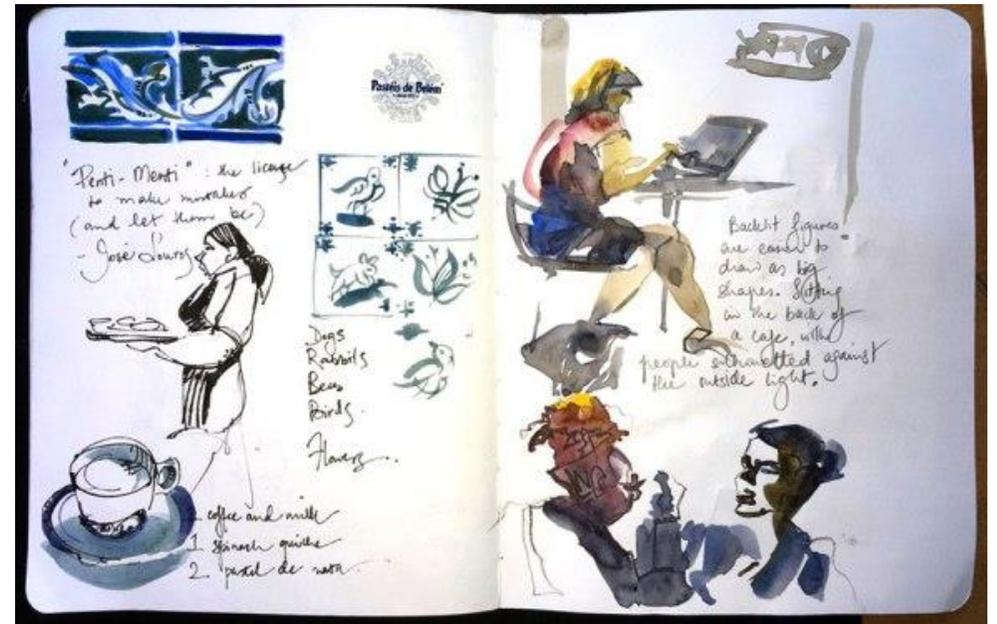 Pastéis de Belém
"Penti-Menti" : the license
to make mistakes
(and let them be)
- José
Dogs
Rabbits
Bees
Birds.
Flowers.
1 coffee and milk
1 spinach quiche
2 pastel de nata.
Backlit figures
are easier to
draw as big
shapes. Sitting
in the back of
a cafe, with
people silhouetted against
the outside light.